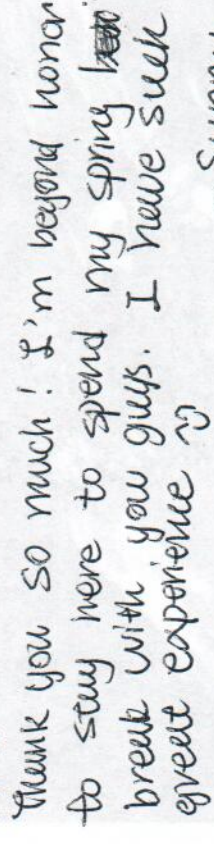 Thank you so much! I'm beyond honor
to stay here to spend my spring
break with you guys. I have such
great experience